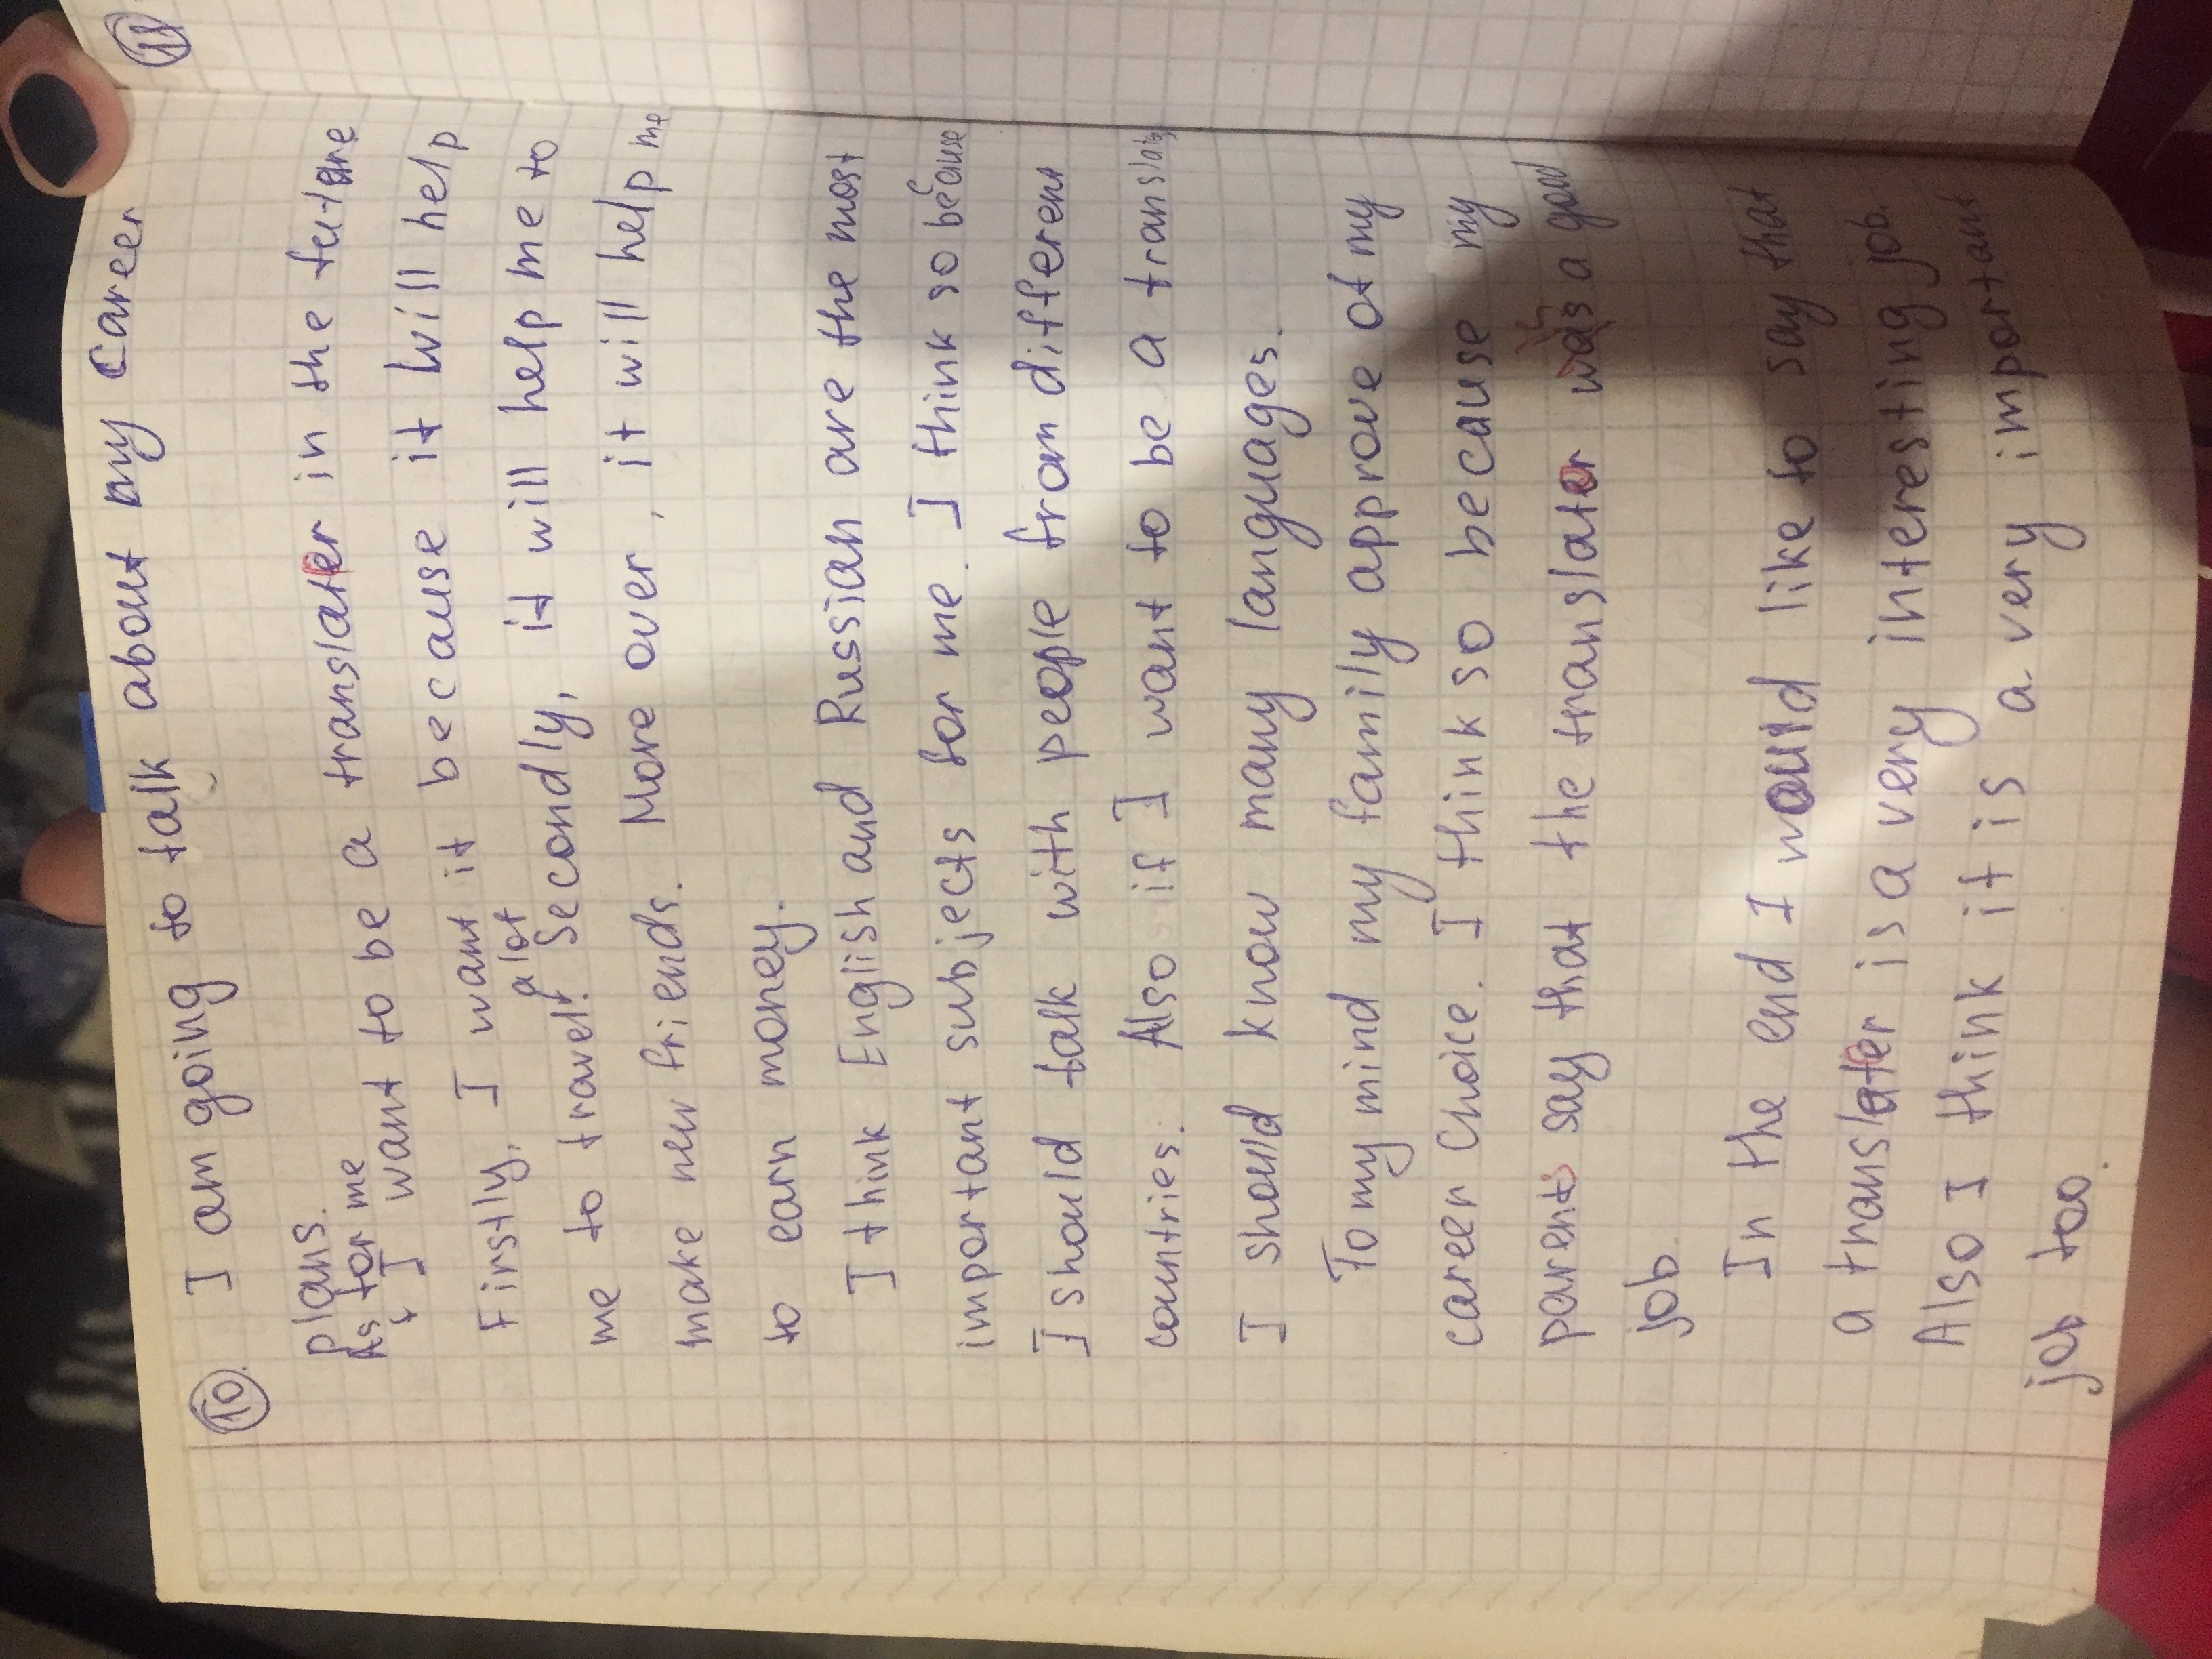 10. I am going to talk about my career
plans.
As for me
I want to be a translater in the future
Firstly, I want it because it will help
a lot
me to travel. Secondly, it will help me to
make new friends. More over, it will help me
to earn money.
I think English and Russian are the most
important subjects for me. I think so because
I should talk with people from different
countries. Also if I want to be a translater
I should know many languages.
To my mind my family approve of my
career choice. I think so because my
parents say that the translater was is a good
job.
In the end I would like to say that
a translater is a very interesting job.
Also I think it is a very important
job too.
11